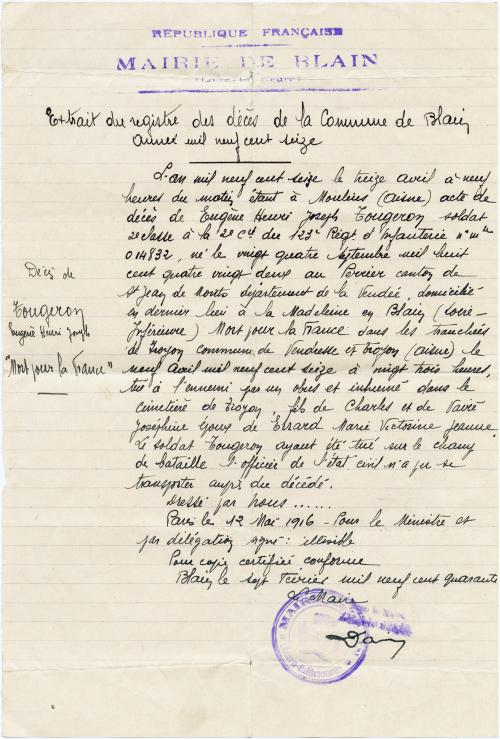 RÉPUBLIQUE FRANÇAISE
MAIRIE DE BLAIN
Extrait du registre des décès de la Commune de Blain
Année mil neuf cent seize
L'an mil neuf cent seize le treize avril à neuf
heures du matin étant à Moulins (aisne) acte de
décès de Eugène Henri Joseph Tougeron soldat
2e classe à la 2e Cie du 123e Régt. d'Infanterie n° mle
014832, né le vingt quatre septembre mil huit
cent quatre vingt deux au Perrier canton de
St Jean de Monts département de la Vendée, domicilié
en dernier lieu à la Madeleine en Blain (Loire-
Inférieure) Mort pour la France dans les tranchées
de Troyon commune de Vendresse et Troyon (aisne) le
neuf Avril mil neuf cent seize à vingt trois heures,
tué à l'ennemi par un obus et inhumé dans le
cimetière de Troyon fils de Charles et de Vairé
Joséphine époux de Erard Marie Victorine Jeanne
Le soldat Tougeron ayant été tué sur le champ
de bataille l'officier de l'état civil n'a pu se
transporter auprès du décédé.
Dressé par nous ......
Paris le 12 Mai 1916 - Pour le Ministre et
par délégation signé : illisible
Pour copie certifiée conforme
Blain le sept Février mil neuf cent quarante
Le Maire
Décès de
Tougeron
Eugène Henri Joseph
"Mort pour la France"
MAIRIE